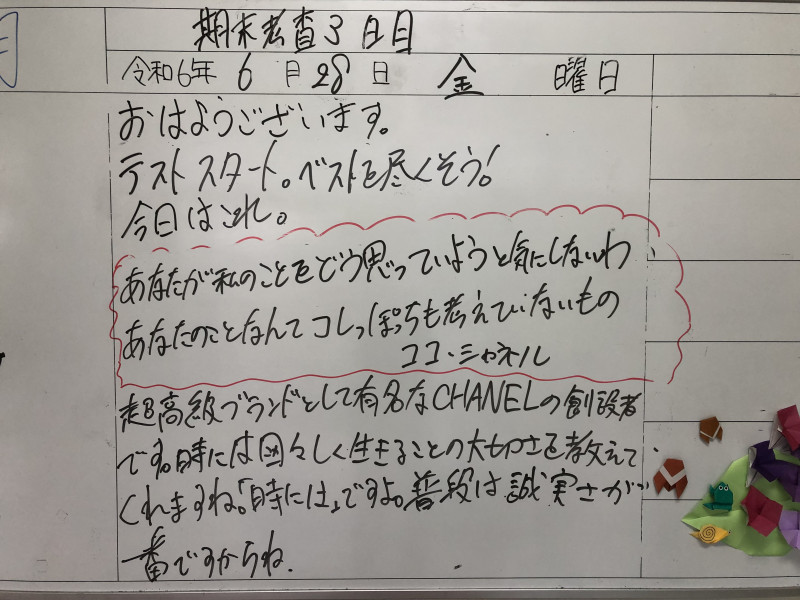 期末考査3日目
令和6年 6月28日 金曜日
おはようございます。
テストスタート。ベストを尽くそう!
今日はこれ。
あなたが私のことをどう思っていようと気にしないわ
あなたのことなんてコレっぽっちも考えていないもの
ココ・シャネル
超高級ブランドとして有名なCHANELの創設者
です。時には図々しく生きることの大切さを教えて
くれますね。「時には」ですよ。普段は誠実さが
一番ですからね.